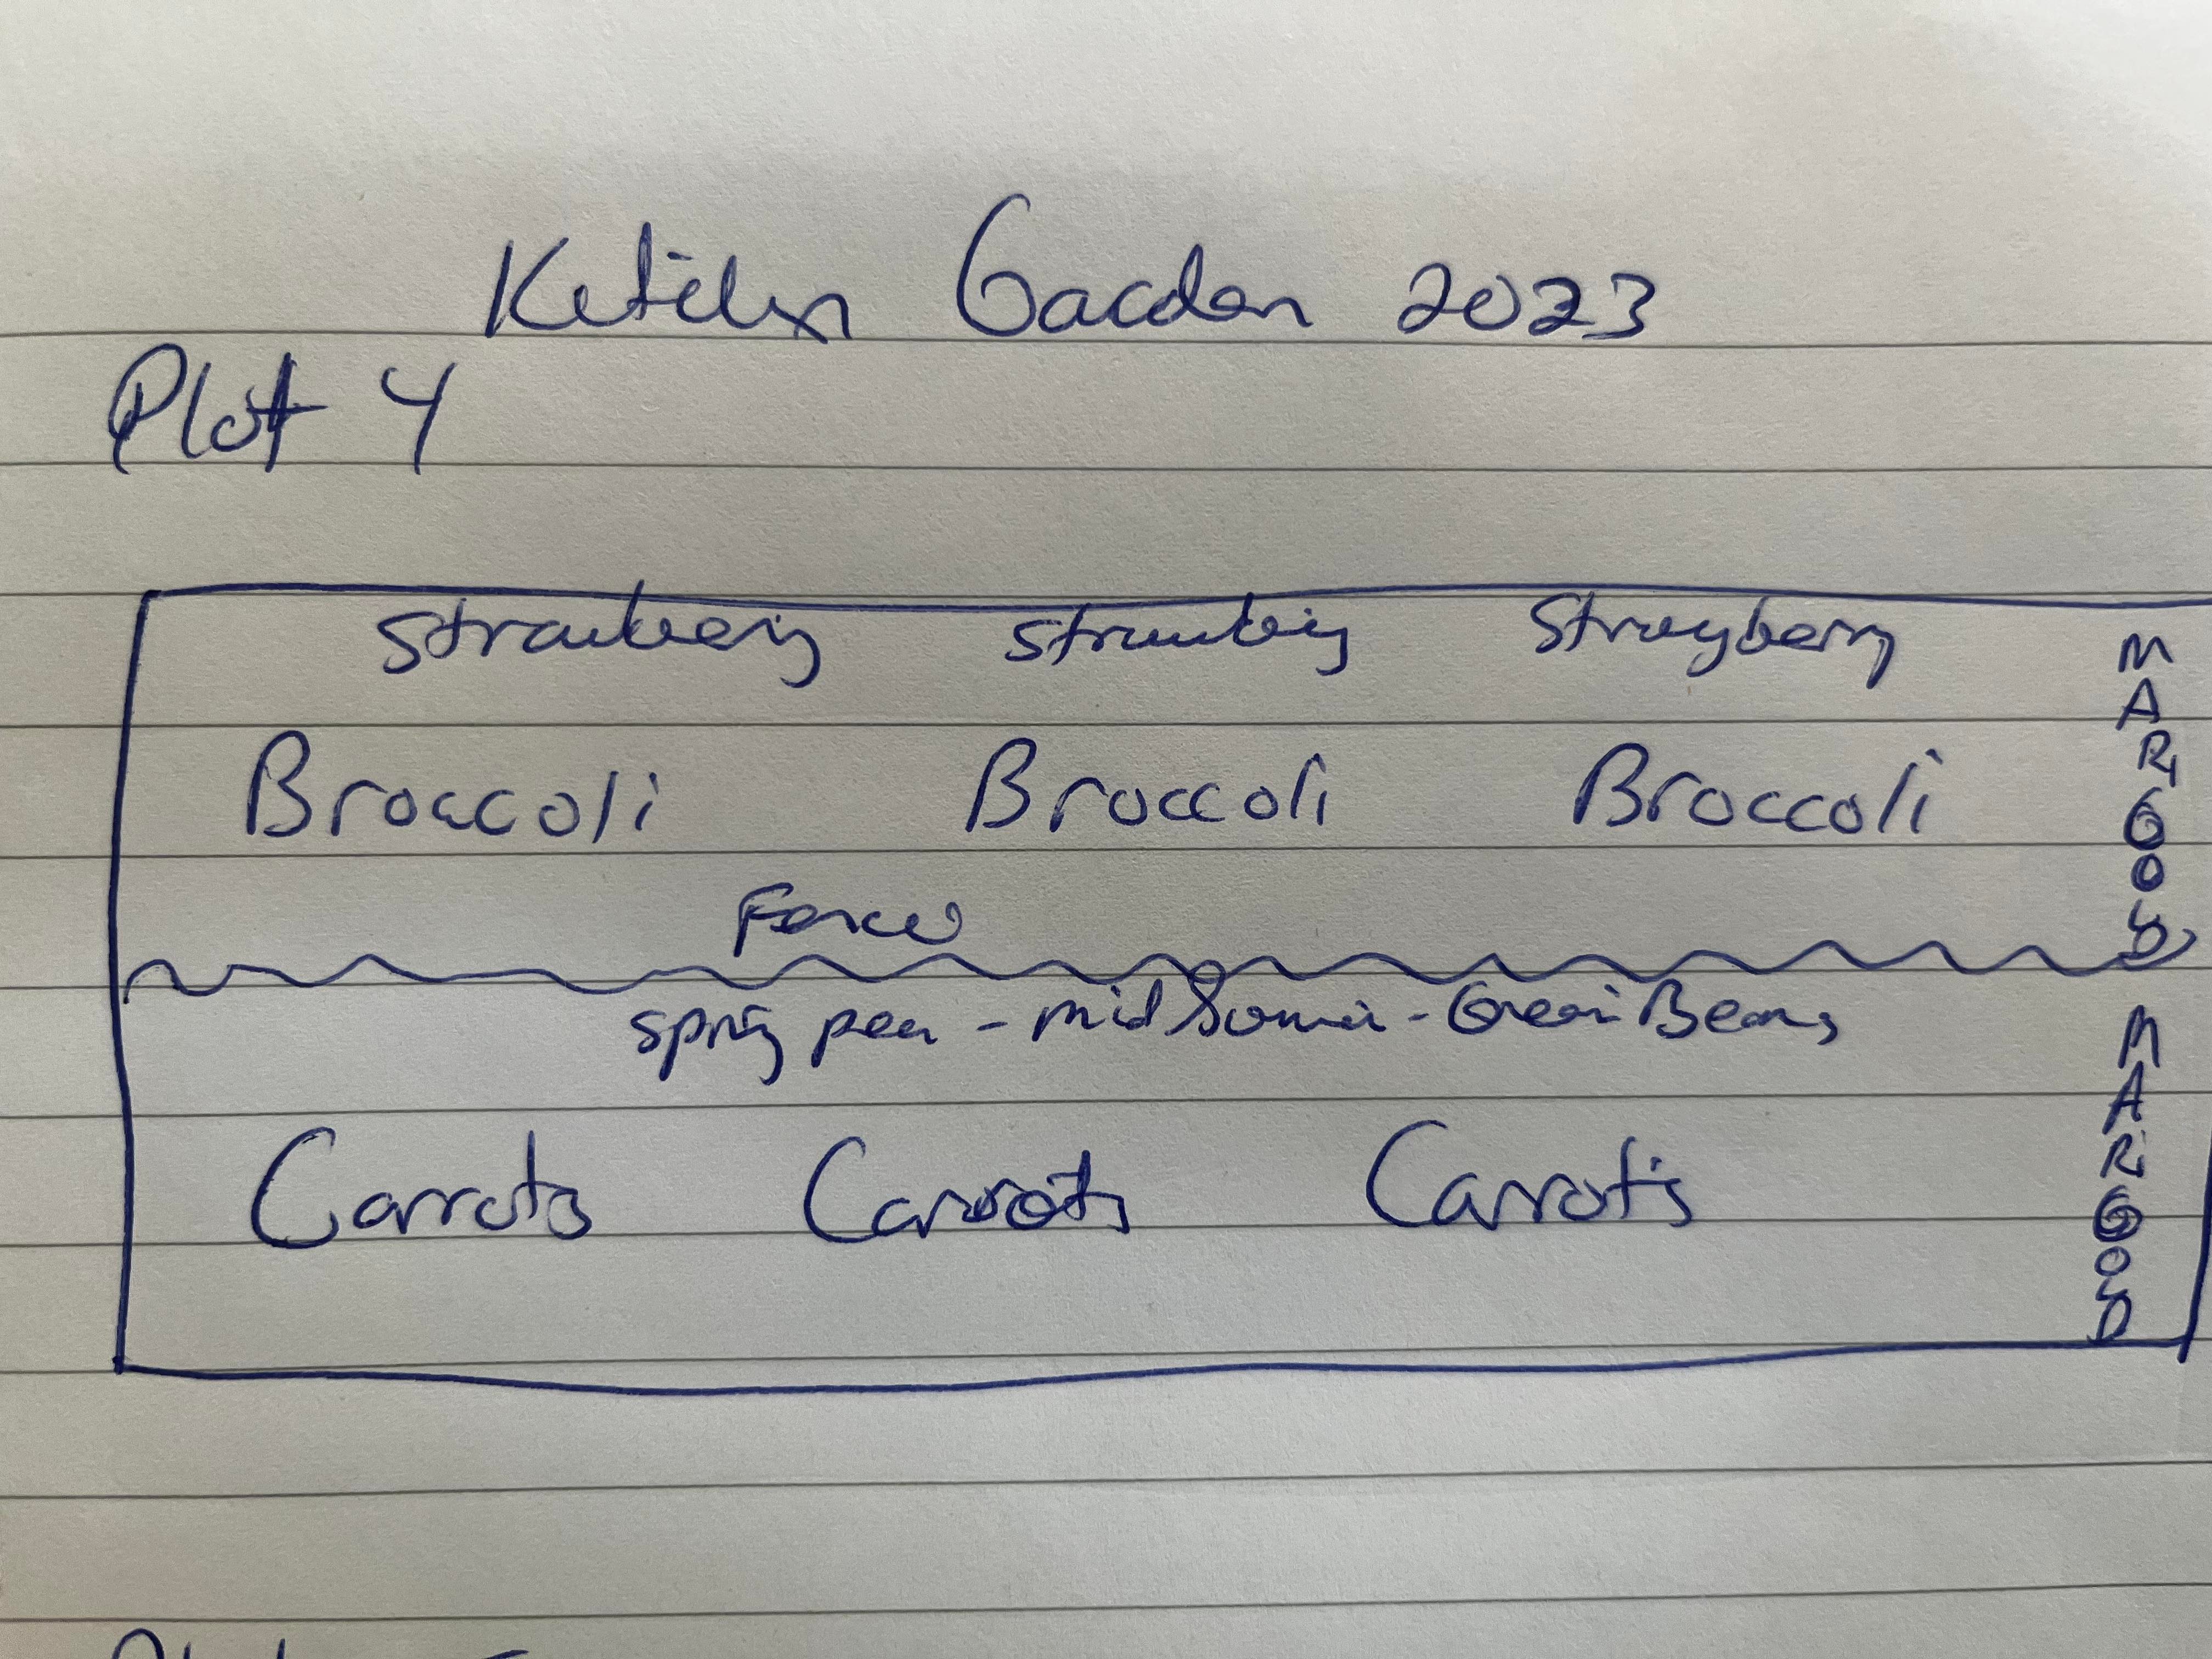 Kitchen Garden 2023
Plot 4
Strawberry Strawberry Strayberry
Broccoli Broccoli Broccoli
Fence
Spring pea - mid Summer - Green Beans
Carrots Carrots Carrots
MARIGOLD
MARIGOLD